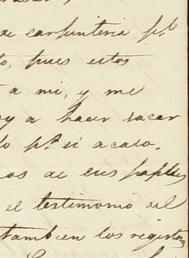 de carpinteria pª
to, pues estos
a mi, y me
oy a hacer sacar
lo pª si acaso.
os de sus papeles
el testimonio del
tambien los registros